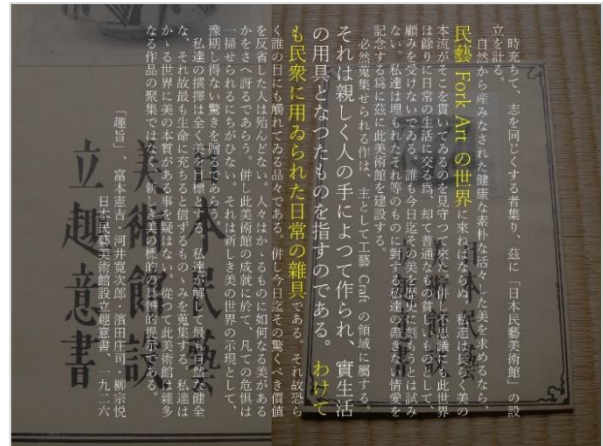 時充ちて、志を同じくする者集り、茲に「日本民藝美術館」の設
立を計る。
自然から産みなされた健康な素朴な活々した美を求めるなら、
民藝 Fork Art の世界に來ねばならぬ。私達は長らく美の
本流がそこを貫いてゐるのを見守つて來た。併し不思議にも此世界
は餘りに日常の生活に交る爲、却て普通なもの貧しきものとして、
顧みを受けないでゐる。誰も今日迄その美を歴史に刻まうとは試み
ない。私達は埋もれたそれ等のものに對する私達の盡きない情愛を
記念する爲に茲に此美術館を建設する。
必然蒐集せられる作は、主として工藝 Craft の領域に屬する。
それは親しく人の手によつて作られ、實生活
の用具となつたものを指すのである。わけて
も民衆に用ゐられた日常の雜具である。それ故恐ら
く誰の目にも觸れてゐる品々である。併し今日迄その驚くべき價値
を反省した人は殆んどない。人々はかゝるものに如何なる美がある
かをさへ訝るであらう。併し此美術館の成就に於て、凡ての危惧は
一掃せられるにちがひない。それは新しき美の世界の示現として、
豫期し得ない驚きを贈るであらう。
私達の撰擇は全く美を目標とする。私達が解して最も自然な健全
な、それ故最も生命に充ちると信ずるものゝみを蒐集する。私達は
かゝる世界に美の本質がある事を疑はない。從つて此美術館は雜多
なる作品の聚集ではなく、新しき美の標的の具體的提示である。
「趣旨」、富本憲吉・河井寛次郎・濱田庄司・柳宗悦
日本民藝美術館設立趣意書、一九二六
日本民藝
美術館設
立趣意書
日本民藝
美術館設
立趣意書